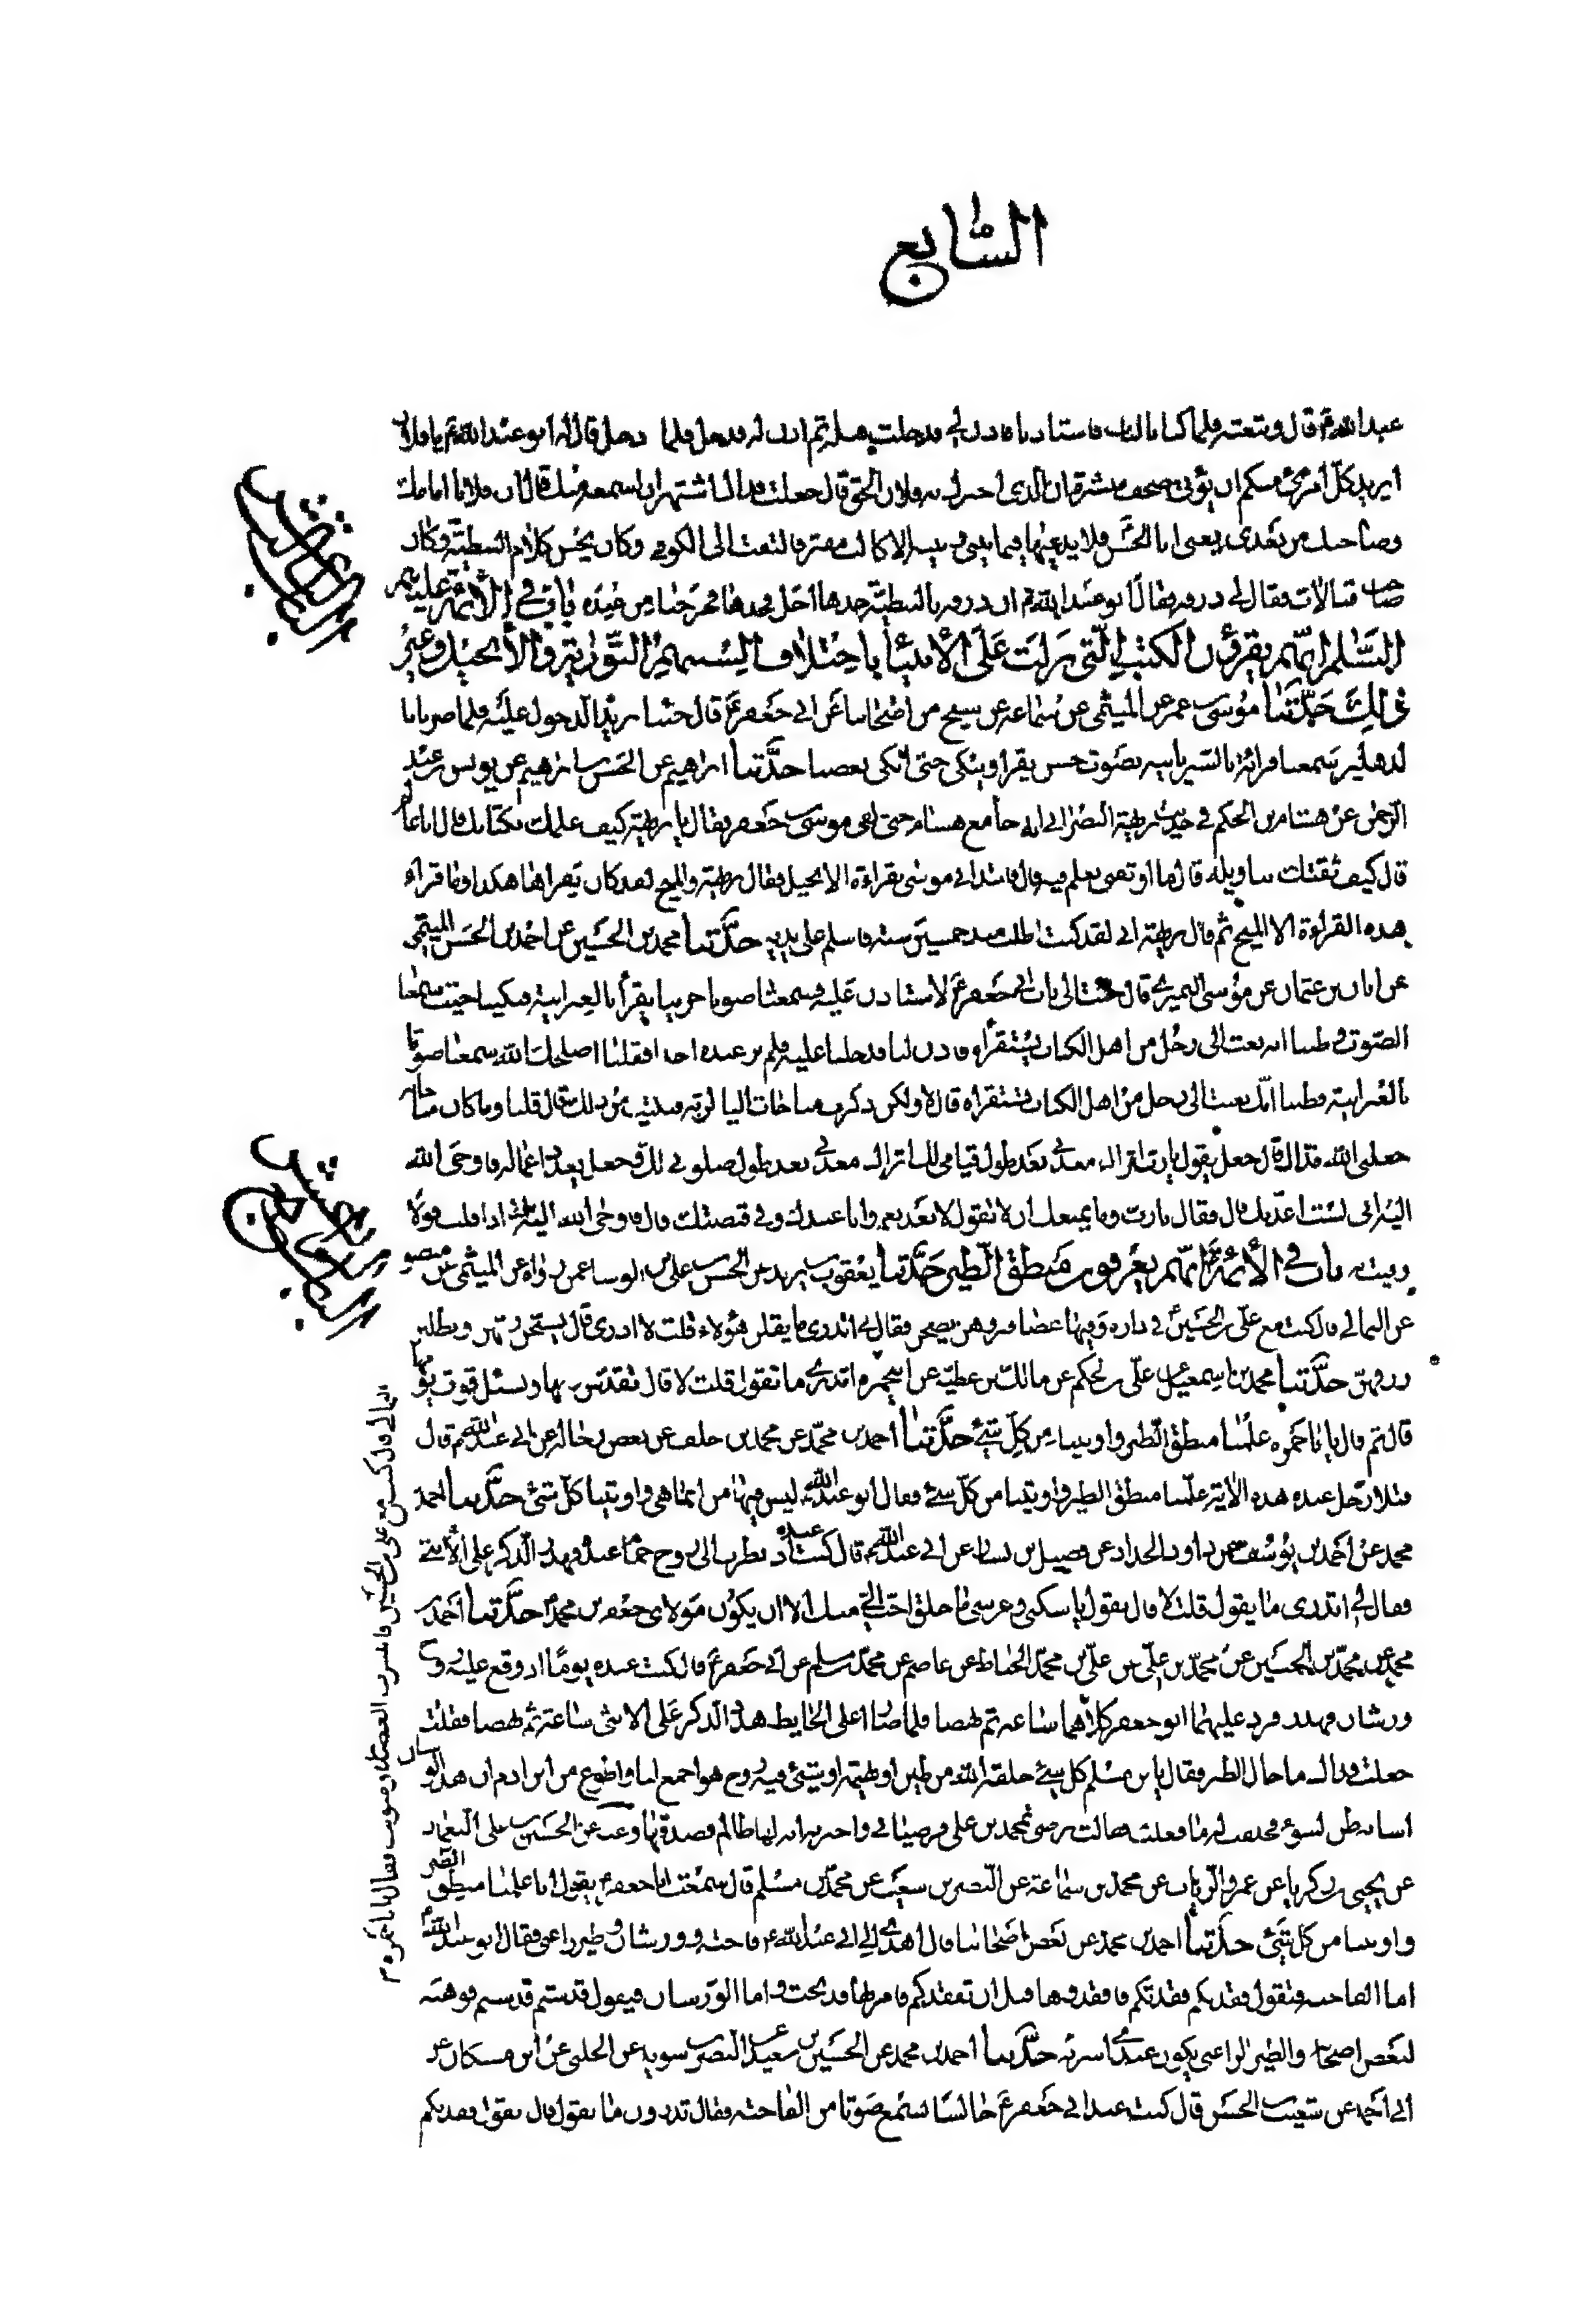 السابع
عبد الله ع قال وتبعته فلما كنا بالباب فاستاذنا فاذن لي فدخلت قبله ثم اذن له فدخل فلما دخل قال له ابو عبد الله ع يا فلان
ايريد كل امرئ منكم ان يؤتى صحفا منشرة ان الذي اخبرك به فلان الحق قال جعلت فداك اشتهي ان اسمعه منك قال ان فلانا امامك
وصاحبك من بعدي يعني ابا الحسن فلا يدعيها فيما بيني وبينه الا كاذب مفتر فالتفت الى الكوفي وكان يحسن كلام النبطية وكان
صاحب قبالات فقال لي درفه فقال ابو عبد الله ع ان درفه بالنبطية خذها اجل فخذها فخرجنا من عنده باب في الائمة عليهم
السلم انهم يقرؤن الكتب التي نزلت على الانبياء باختلاف السنتهم التورية والانجيل وغير
ذلك حدثنا موسى بن عمر عن الميثمي عن سماعة عن شيخ من اصحابنا عن ابي جعفر ع قال جئنا نريد الدخول عليه فلما صرنا بالـ
لدهليز سمعنا قراءة بالسريانية بصوت حسن يقرا ويبكي حتى ابكى بعضنا حدثنا ابراهيم عن الحسن بن ابراهيم عن يونس بن عبد
الرحمن عن هشام بن الحكم في حديث بريهة النصراني انه جاء مع هشام حتى لقي موسى بن جعفر فقال يا بريهة كيف علمك بكتابك قال انا عالم
قال كيف ثقتك بتاويله قال ما اوثقني بعلمي فيه قال فابتداني موسى بقراءة الانجيل فقال بريهة والمسيح لقد كان يقراها هكذا وما قراء
هذه القراءة الا المسيح ثم قال بريهة اياك لقد كنت اطلب منذ خمسين سنة فاسلم على يديه حدثنا محمد بن الحسين عن احمد بن الحسن الميثمي
عن ابان بن عثمان عن موسى النميري قال جئت الى باب ابي جعفر ع لاستاذن عليه فسمعنا صوتا حزينا يقرأ بالعبرانية فبكينا حيث سمعنا
الصوت وظننا انه بعث الى رجل من اهل الكتاب يستقرأه فاذن لنا فدخلنا عليه فلم نر عنده احدا فقلنا اصلحك الله سمعنا صوتا
بالعبرانية فظننا انك بعثت الى رجل من اهل الكتاب تستقراه قال لا ولكن ذكرت مناجات اليا لربه فبكيت من ذلك قال قلنا وما كان مناجاته
جعلني الله فداك قال جعل يقول يا رب اتراك معذبي بعد طول قيامي لك اتراك معذبي بعد طول صلوتي لك وجعل يعدد اعماله فاوحى الله
اليه اني لست اعذبك قال فقال يا رب وما يمنعك ان لا تقول لا بعد نعم وانا عبدك وفي قبضتك قال فاوحى الله اليه اني اذا قلت قولا
وفيت به باب في الائمة انهم يعرفون منطق الطير حدثنا يعقوب بن يزيد عن الحسن بن علي الوشا عمن رواه عن الميثمي عن منصور
عن الثمالي قال كنت مع علي بن الحسين ع في داره وفيها عصافير وهن يصحن فقال لي اتدري ما يقلن هؤلاء قلت لا ادري قال يسبحن ربهن ويطلبن
رزقهن حدثنا محمد بن اسمعيل عن علي بن الحكم عن مالك بن عطية عن ابي حمزه اتدري ما تقول قلت لا قال تقدس ربها وتسئل قوت يومها
قال ثم قال يا با حمزه علمنا منطق الطير واوتينا من كل شئ حدثنا احمد بن محمد عن محمد بن خلف عن بعض رجاله عن ابي عبد الله ع قال
فتلا رجل عنده هذه الاية علمنا منطق الطير واوتينا من كل شئ فقال ابو عبد الله ليس فيها من انما هي واوتينا كل شئ حدثنا احمد بن
محمد عن احمد بن يوسف عن داود الحداد عن فضيل بن يسار عن ابي عبد الله ع قال كنت عنده اذ نظرت الى زوج حمام عنده فهدر الذكر على الانثى
فقال لي اتدري ما يقول قلت لا قال يقول يا سكني وعرسي ما خلق احب الي منك الا ان يكون مولاي جعفر بن محمد ع حدثنا احمد بن
محمد عن محمد بن الحسين عن محمد بن علي عن علي بن محمد الحناط عن عاصم عن محمد بن مسلم عن ابي جعفر ع قال كنت عنده يوما اذ وقع عليه زوج
ورشان فهدلا فرد عليهما ابو جعفر كلامهما ساعة ثم نهضا فلما صارا على الحايط هدل الذكر على الانثى ساعة ثم نهضا فقلت
جعلت فداك ما حال الطير فقال يا بن مسلم كل شئ خلقه الله من طير او بهيمة او شئ فيه روح هو اسمع لنا واطوع من ابن ادم ان هذا الورشان
اساء ظن لسوء فحلفت له ما فعلت فقالت ترضى بمحمد بن علي فرضيا بي واخبرته انه لها ظالم فصدقها وعنه عن الحسين بن علي النعمان
عن يحيى بن زكريا عن عمرو الزيات عن محمد بن سماعة عن النصر بن شعيب عن محمد بن مسلم قال سمعت ابا جعفر ع يقول انا علمنا منطق الطير
واوتينا من كل شئ حدثنا احمد بن محمد عن بعض اصحابنا قال اهدي الى ابي عبد الله ع فاخته وورشان وطير راعبي فقال ابو عبد الله ع
اما الفاخته فتقول فقدتكم فقدتكم فافقدوها قبل ان تفقدكم فامر بها فذبحت واما الورشان فيقول قدستم قدستم فوهبه
لبعض اصحابه والطير الراعبي يكون عندي اسر به حدثنا احمد بن محمد عن الحسين بن سعيد عن النصر بن سويد عن الحلبي عن ابن مسكان عن
ابي احمد عن شعيب بن الحسن قال كنت عند ابي جعفر ع جالسا فسمع صوتا من الفاخته فقال تدرون ما تقول قال تقول فقدتكم